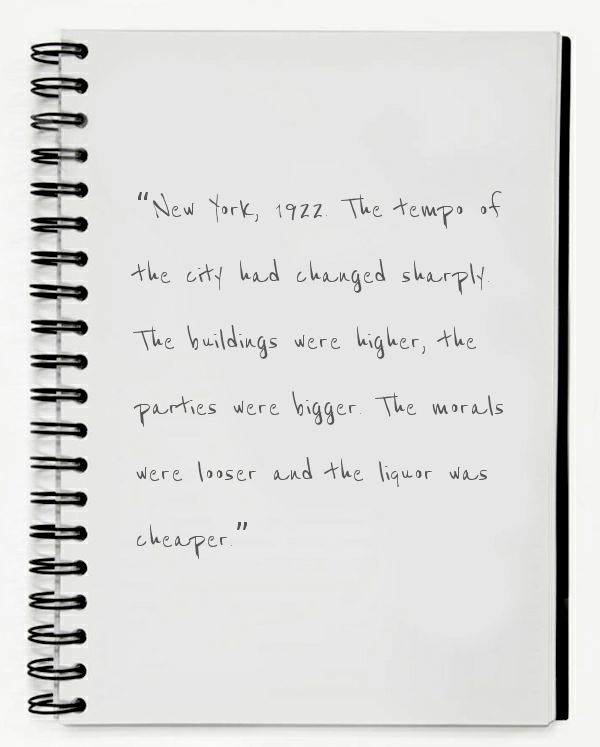 "New York, 1922. The tempo of
the city had changed sharply.
The buildings were higher, the
parties were bigger. The morals
were looser and the liquor was
cheaper."